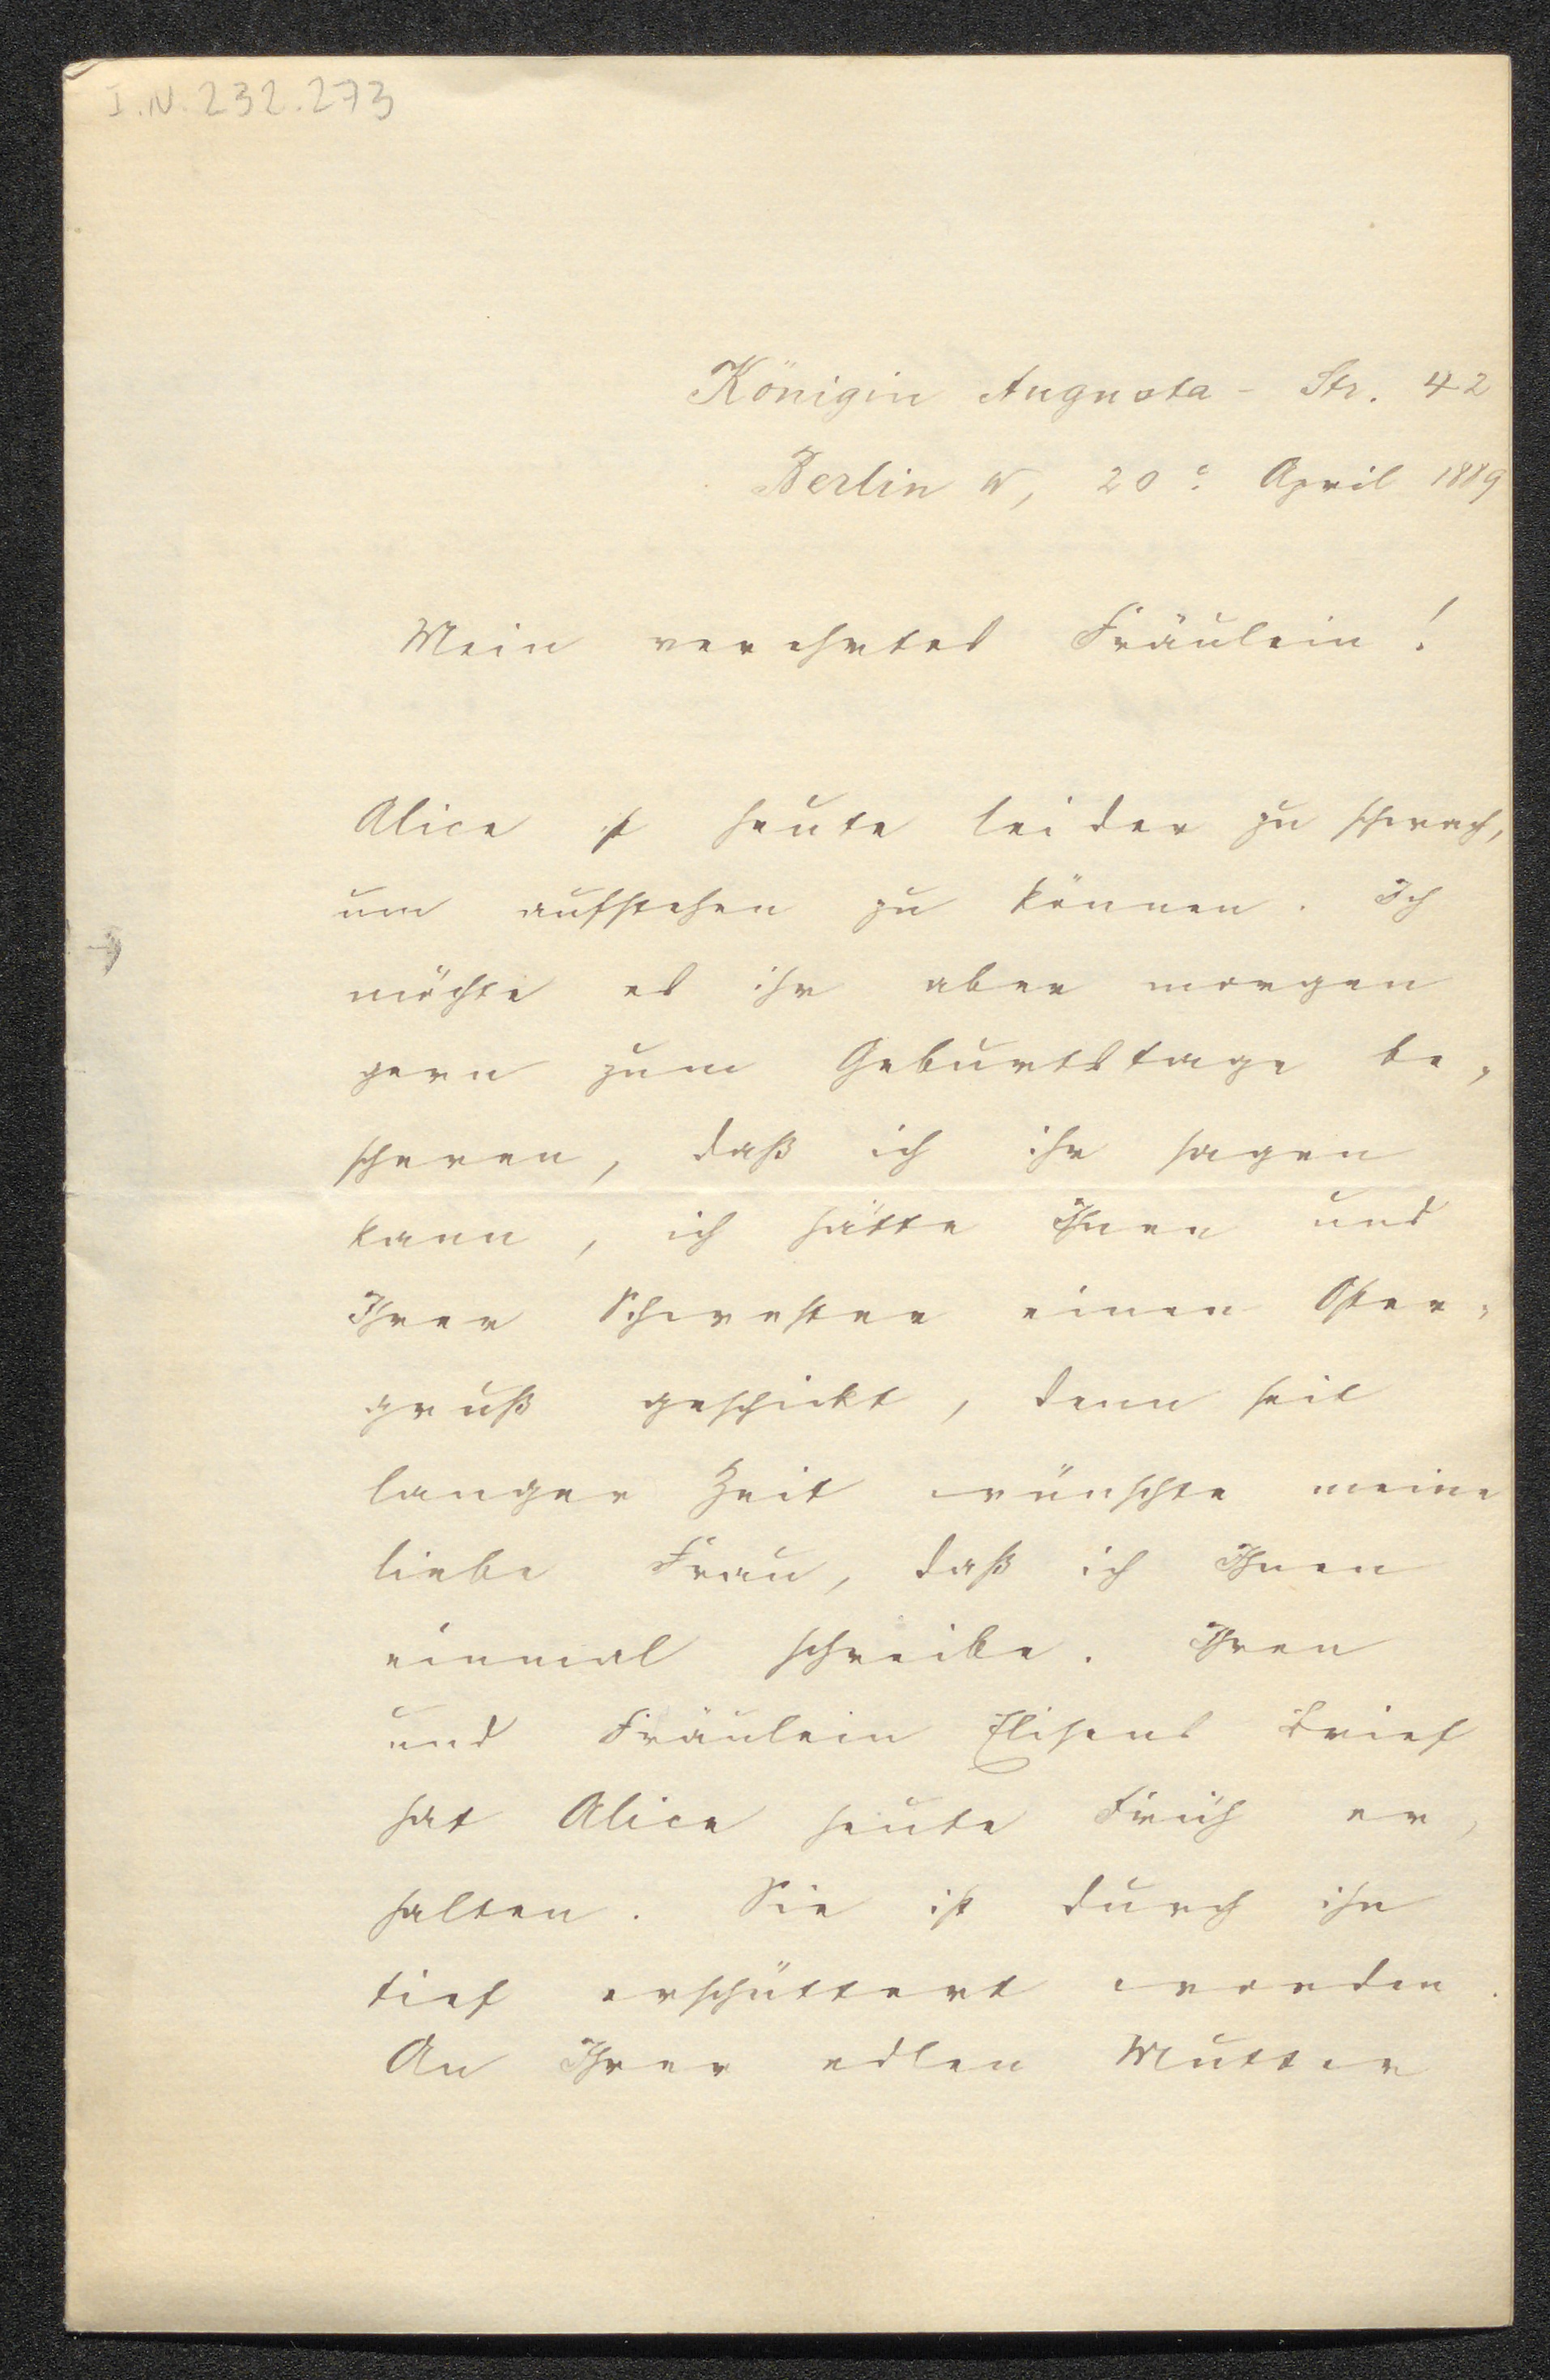 I.N. 232.273
Königin Augusta - Str. 42
Berlin W, 20c. April 1889
Mein verehrtes Fräulein!
Alice ist heute leider zu schwach,
um aufstehen zu können. Ich
möchte es ihr aber morgen
gern zum Geburtstage be-
scheren, daß ich ihr sagen
kann, ich hätte Ihnen und
Ihrer Schwester einen Oster-
gruß geschickt, denn seit
langer Zeit wünschte meine
liebe Frau, daß ich Ihnen
einmal schreibe. Ihren
und Fräulein Elisens Brief
hat Alice heute Früh er-
halten. Sie ist durch ihn
tief erschüttert worden.
An Ihrer edlen Mutter